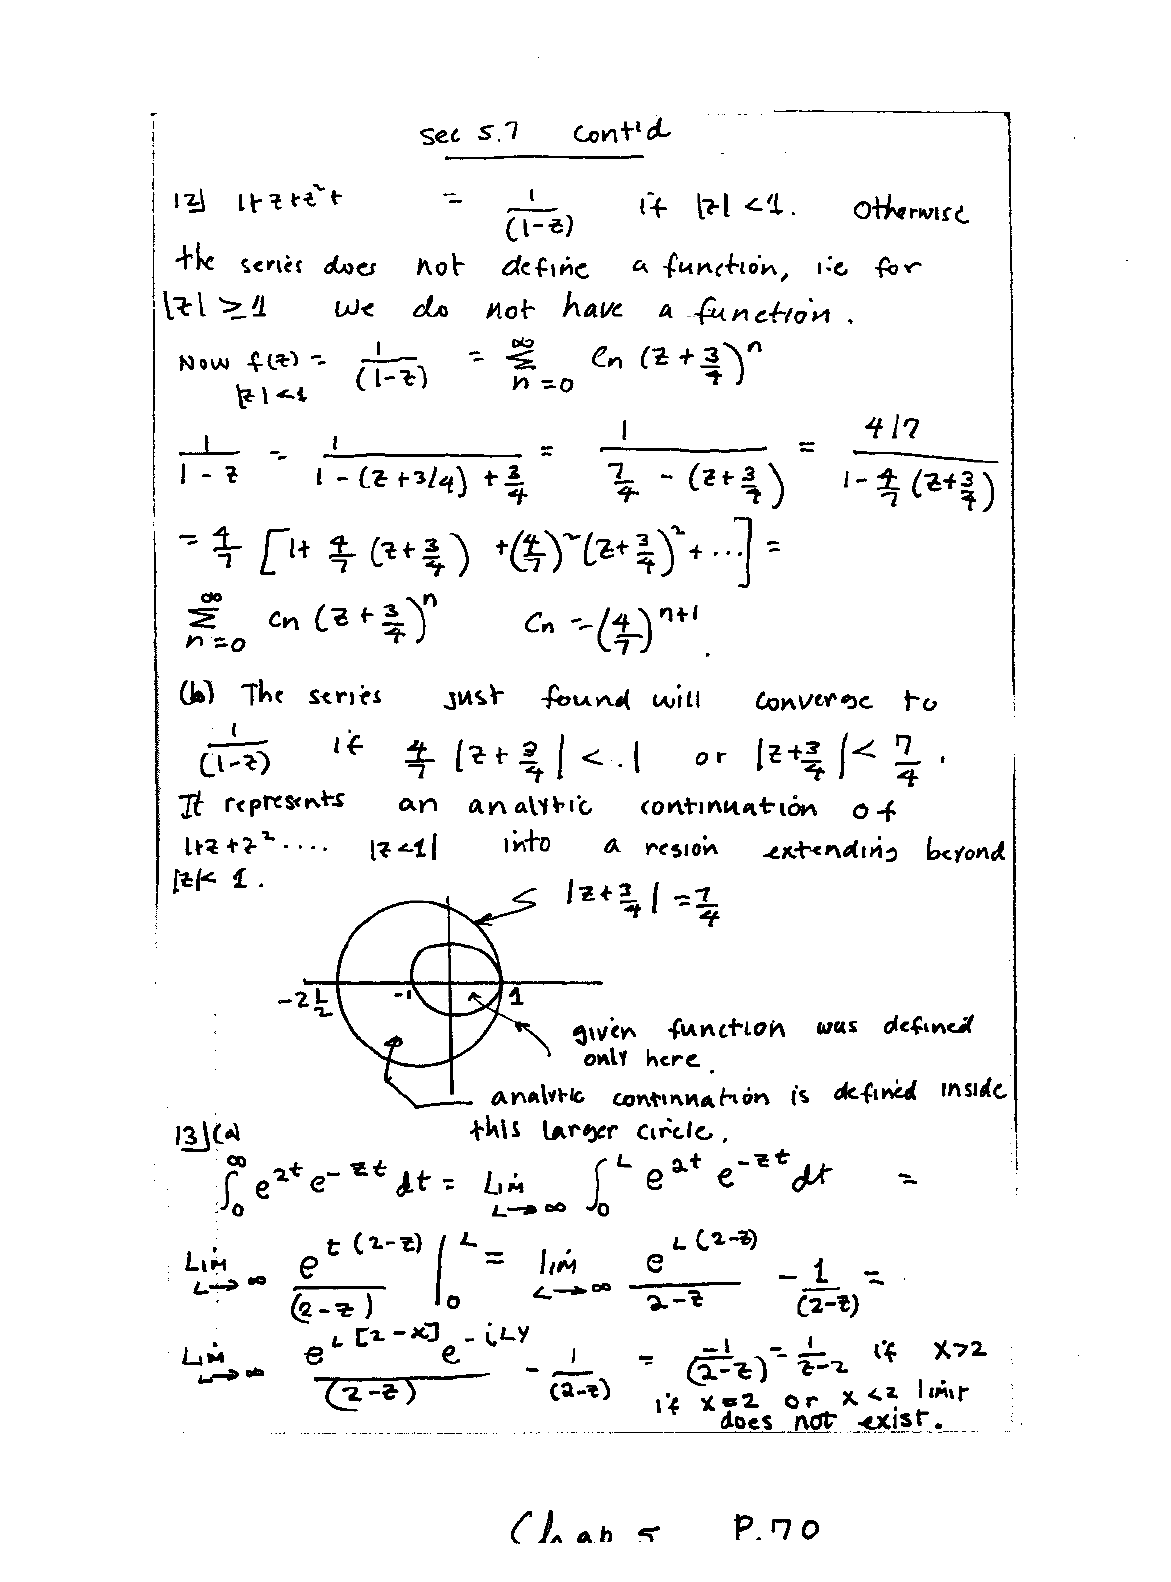 Sec 5.7 Cont'd
12] 1+z+z²+ = 1/(1-z) if |z| <1. Otherwise
the series does not define a function, i.e for
|z| ≥1 we do not have a function.
Now f(z) = 1/(1-z) = ∑_{n=0}^{∞} Cn (z+3/4)^n
|z|<1
1/(1-z) = 1/(1-(z+3/4)+3/4) = 1/(7/4 - (z+3/4)) = 4/7/(1-4/7 (z+3/4))
= 4/7 [1+ 4/7 (z+3/4) +(4/7)²(z+3/4)²+...] =
∑_{n=0}^{∞} Cn (z+3/4)^n Cn = (4/7)^{n+1}.
(b) The series just found will converge to
1/(1-z) if 4/7 |z+3/4| < 1 or |z+3/4| < 7/4.
It represents an analytic continuation of
1+z+z².... |z<1| into a region extending beyond
|z|< 1.
|z+3/4| = 7/4
-2 1/2 -1 1
given function was defined
only here.
analytic continuation is defined inside
this larger circle.
13](a)
∫_0^∞ e^{2t} e^{-zt} dt = Lim_{L→∞} ∫_0^L e^{2t} e^{-zt} dt =
Lim_{L→∞} e^{t(2-z)}/(2-z) |_0^L = lim_{L→∞} e^{L(2-z)}/(2-z) - 1/(2-z) =
Lim_{L→∞} e^{L[2-x]} e^{-iLy}/(2-z) - 1/(2-z) = -1/(2-z) = 1/(z-2) if x>2
if x=2 or x<2 limit
does not exist.
Chap 5 P.70